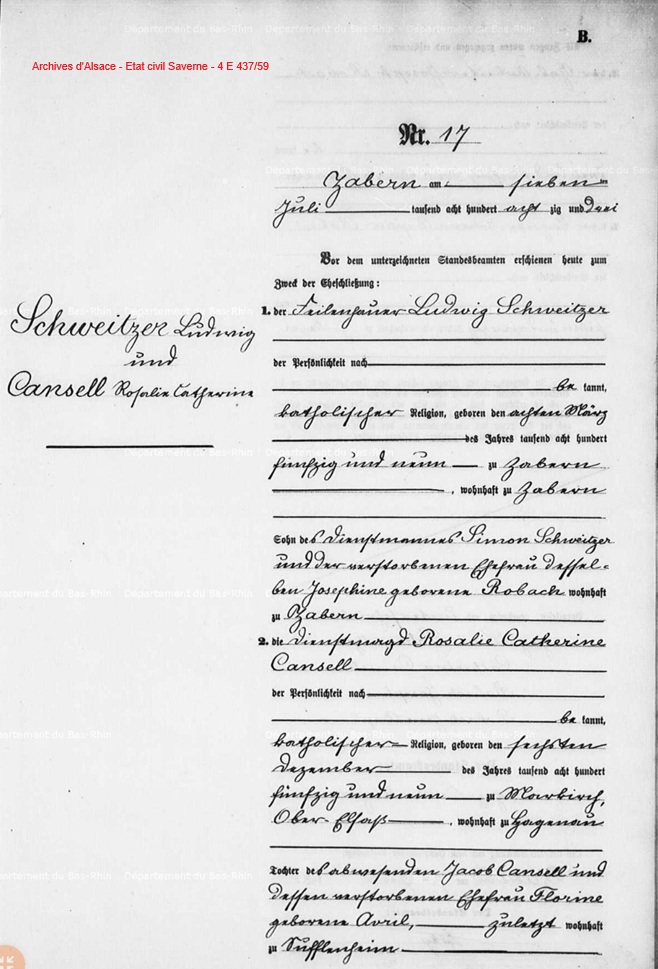 B.
Archives d'Alsace - Etat civil Saverne - 4 E 437/59
Nr. 17
Zabern am sieben ten
Juli tausend acht hundert acht zig und drei
Vor dem unterzeichneten Standesbeamten erschienen heute zum
Zweck der Eheschließung:
Schweitzer Ludwig
und
Cansell Rosalie Catherine
1. der Feilenhauer Ludwig Schweitzer
der Persönlichkeit nach
be kannt,
katholischer Religion, geboren den achten März
des Jahres tausend acht hundert
fünfzig und neun zu Zabern
, wohnhaft zu Zabern
Sohn des Dienstmannes Simon Schweitzer
und der verstorbenen Ehefrau dessel-
ben Josephine geborene Robach wohnhaft
zu Zabern
2. die Dienstmagd Rosalie Catherine
Cansell
der Persönlichkeit nach
be kannt,
katholischer Religion, geboren den sechsten
Dezember des Jahres tausend acht hundert
fünfzig und neun zu Markirch,
Ober-Elsaß , wohnhaft zu Hagenau
Tochter des abwesenden Jacob Cansell und
dessen verstorbenen Ehefrau Florine
geborene Avril, zuletzt wohnhaft
zu Sufflenheim
Département du Bas-Rhin